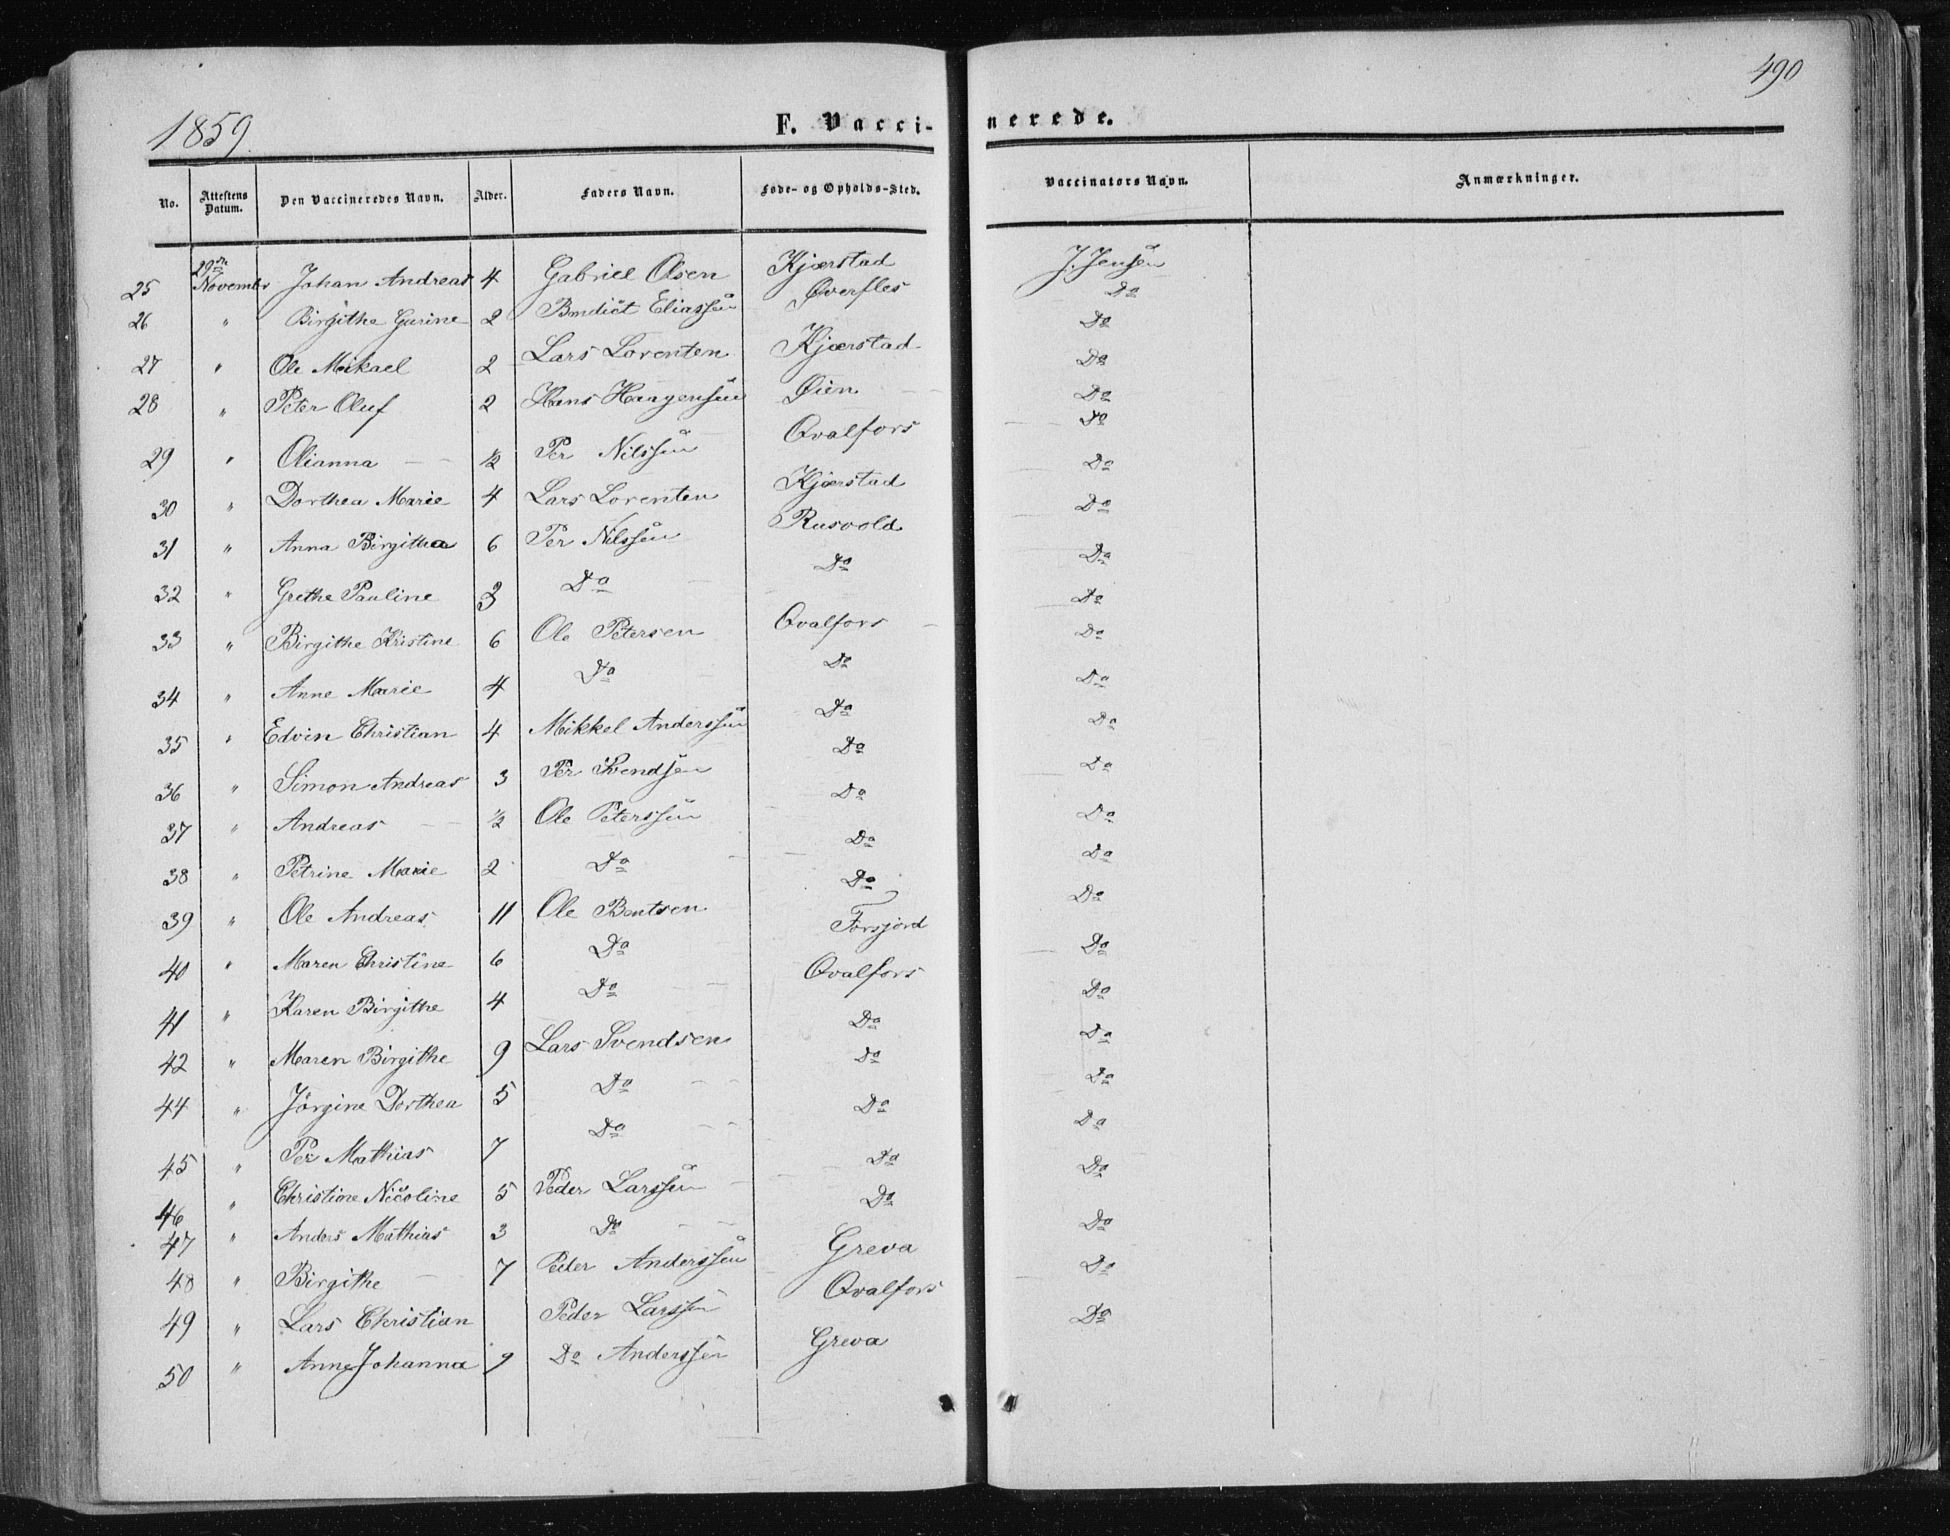 490
1859.
F. Vaccinerede.
No. | Attestens Datum. | Den Vaccineredes Navn. | Alder. | Faders Navn. | Føde- og Opholds-Sted. | Vaccinators Navn. | Anmærkninger.
25 | 29de November | Johan Andreas | 4 | Gabriel Olsen | Kjærstad | J. Jensen
26 | " | Birgithe Garine | 2 | Bendict Eliassen | Øverfles | Do
27 | " | Ole Mikael | 2 | Lars Lorenten | Kjærstad | Do
28 | " | Peter Oluf | 2 | Hans Haagensen | Øien | Do
29 | " | Olianna | 1/2 | Per Nilssen | Qvalfors | Do
30 | " | Dorthea Marie | 4 | Lars Lorenten | Kjærstad | Do
31 | " | Anna Birgitha | 6 | Per Nilssen | Rusvold | Do
32 | " | Grethe Pauline | 3 | Do | Do | Do
33 | " | Birgithe Kristine | 6 | Ole Petersen | Qvalfors | Do
34 | " | Anne Marie | 4 | Do | Do | Do
35 | " | Edvin Christian | 4 | Mikkel Anderssen | Do | Do
36 | " | Simon Andreas | 3 | Per Svendsen | Do | Do
37 | " | Andreas | 1/2 | Ole Peterssen | Do | Do
38 | " | Petrine Marie | 2 | Do | Do | Do
39 | " | Ole Andreas | 11 | Ole Bentsen | Do | Do
40 | " | Maren Christine | 6 | Do | Forsjord | Do
41 | " | Karen Birgithe | 4 | Do | Qvalfors | Do
42 | " | Maren Birgithe | 9 | Lars Svendsen | Do | Do
44 | " | Jörgine Dorthea | 5 | Do | Do | Do
45 | " | Per Mathias | 7 | Do | Do | Do
46 | " | Christine Nicoline | 5 | Peder Larssen | Do | Do
47 | " | Anders Mathias | 3 | Do | Do | Do
48 | " | Birgithe | 7 | Peder Anderssen | Greva | Do
49 | " | Lars Christian | Peder Larssen | Qvalfors | Do
50 | " | Anne Johanna | 9 | Do Anderssen | Greva | Do